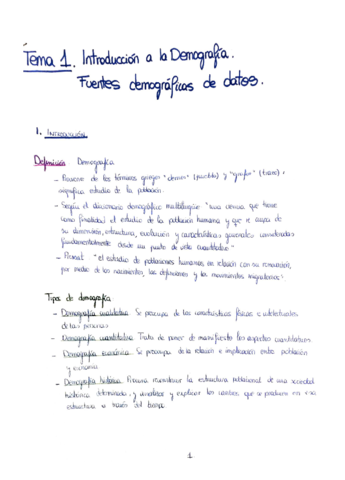 Tema 1. Introducción a la Demografía.
Fuentes demográficas de datos.
1. Introducción
Definición Demografía
- Proviene de los términos griegos "demos" (pueblo) y "grafos" (trazo),
significa estudio de la población.
- Según el diccionario demográfico multilingüe "una ciencia que tiene
como finalidad el estudio de la población humana y que se ocupa de
su dimensión, estructura, evolución y características generales consideradas
fundamentalmente desde un punto de vista cuantitativo"
- "el estudio de poblaciones humanas en relación con su renovación,
por medio de los nacimientos, las defunciones y los movimientos migratorios"
Tipos de demografía
- Demografía cualitativa. Se preocupa de las características físicas e intelectuales
de las personas
- Demografía cuantitativa. Trata de poner de manifiesto los aspectos cuantitativos
- Demografía económica. Se preocupa de la relación e implicación entre población
y economía
- Demografía histórica. Procura reconstruir la estructura poblacional de una sociedad
histórica determinada, y analizar y explicar los cambios que se producen en esa
estructura a través del tiempo
1